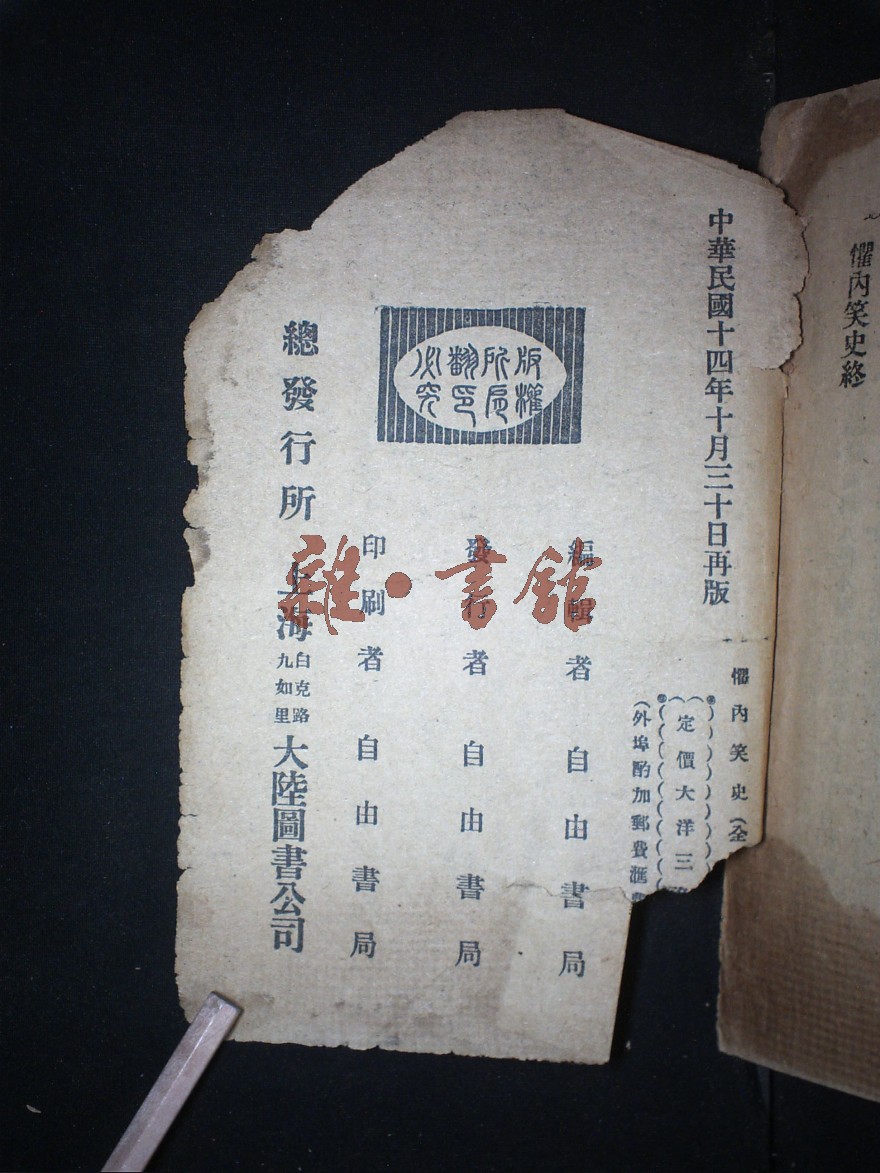 懼內笑史終
中華民國十四年十月三十日再版
懼內笑史（全
定價大洋三
（外埠酌加郵費滙費
版權
所有
翻印
必究
編輯者 自由書局
發行者 自由書局
印刷者 自由書局
總發行所 上海 白克路 九如里 大陸圖書公司
雜·書舘